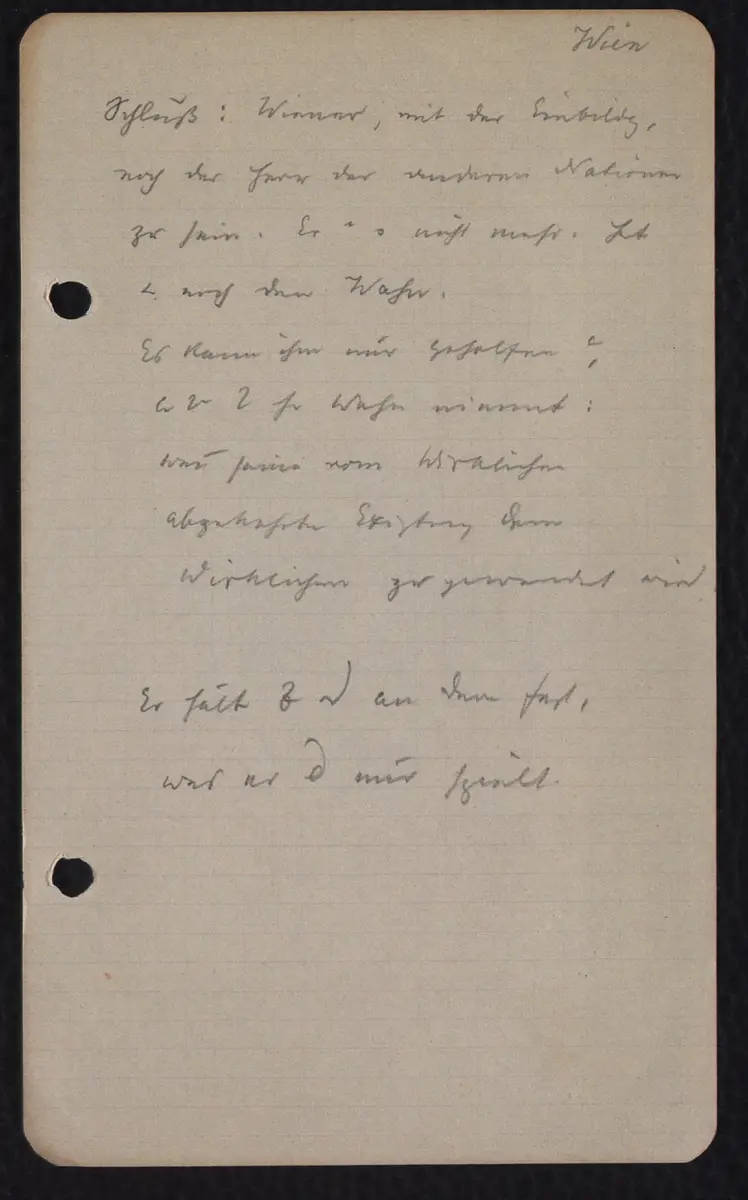 Wien
Schluß: Wiener, mit der Einbildg,
noch der Herr der anderen Nationen
zu sein. Er nicht mehr. Hat
noch den Wahn.
Es kann ihm nur geholfen
Wahn nimmt:
wenn seine vom Wirklichen
abgekehrte Existenz dem
Wirklichen zugewendet wird.
Er hält an dem fest,
was er nur spielt.